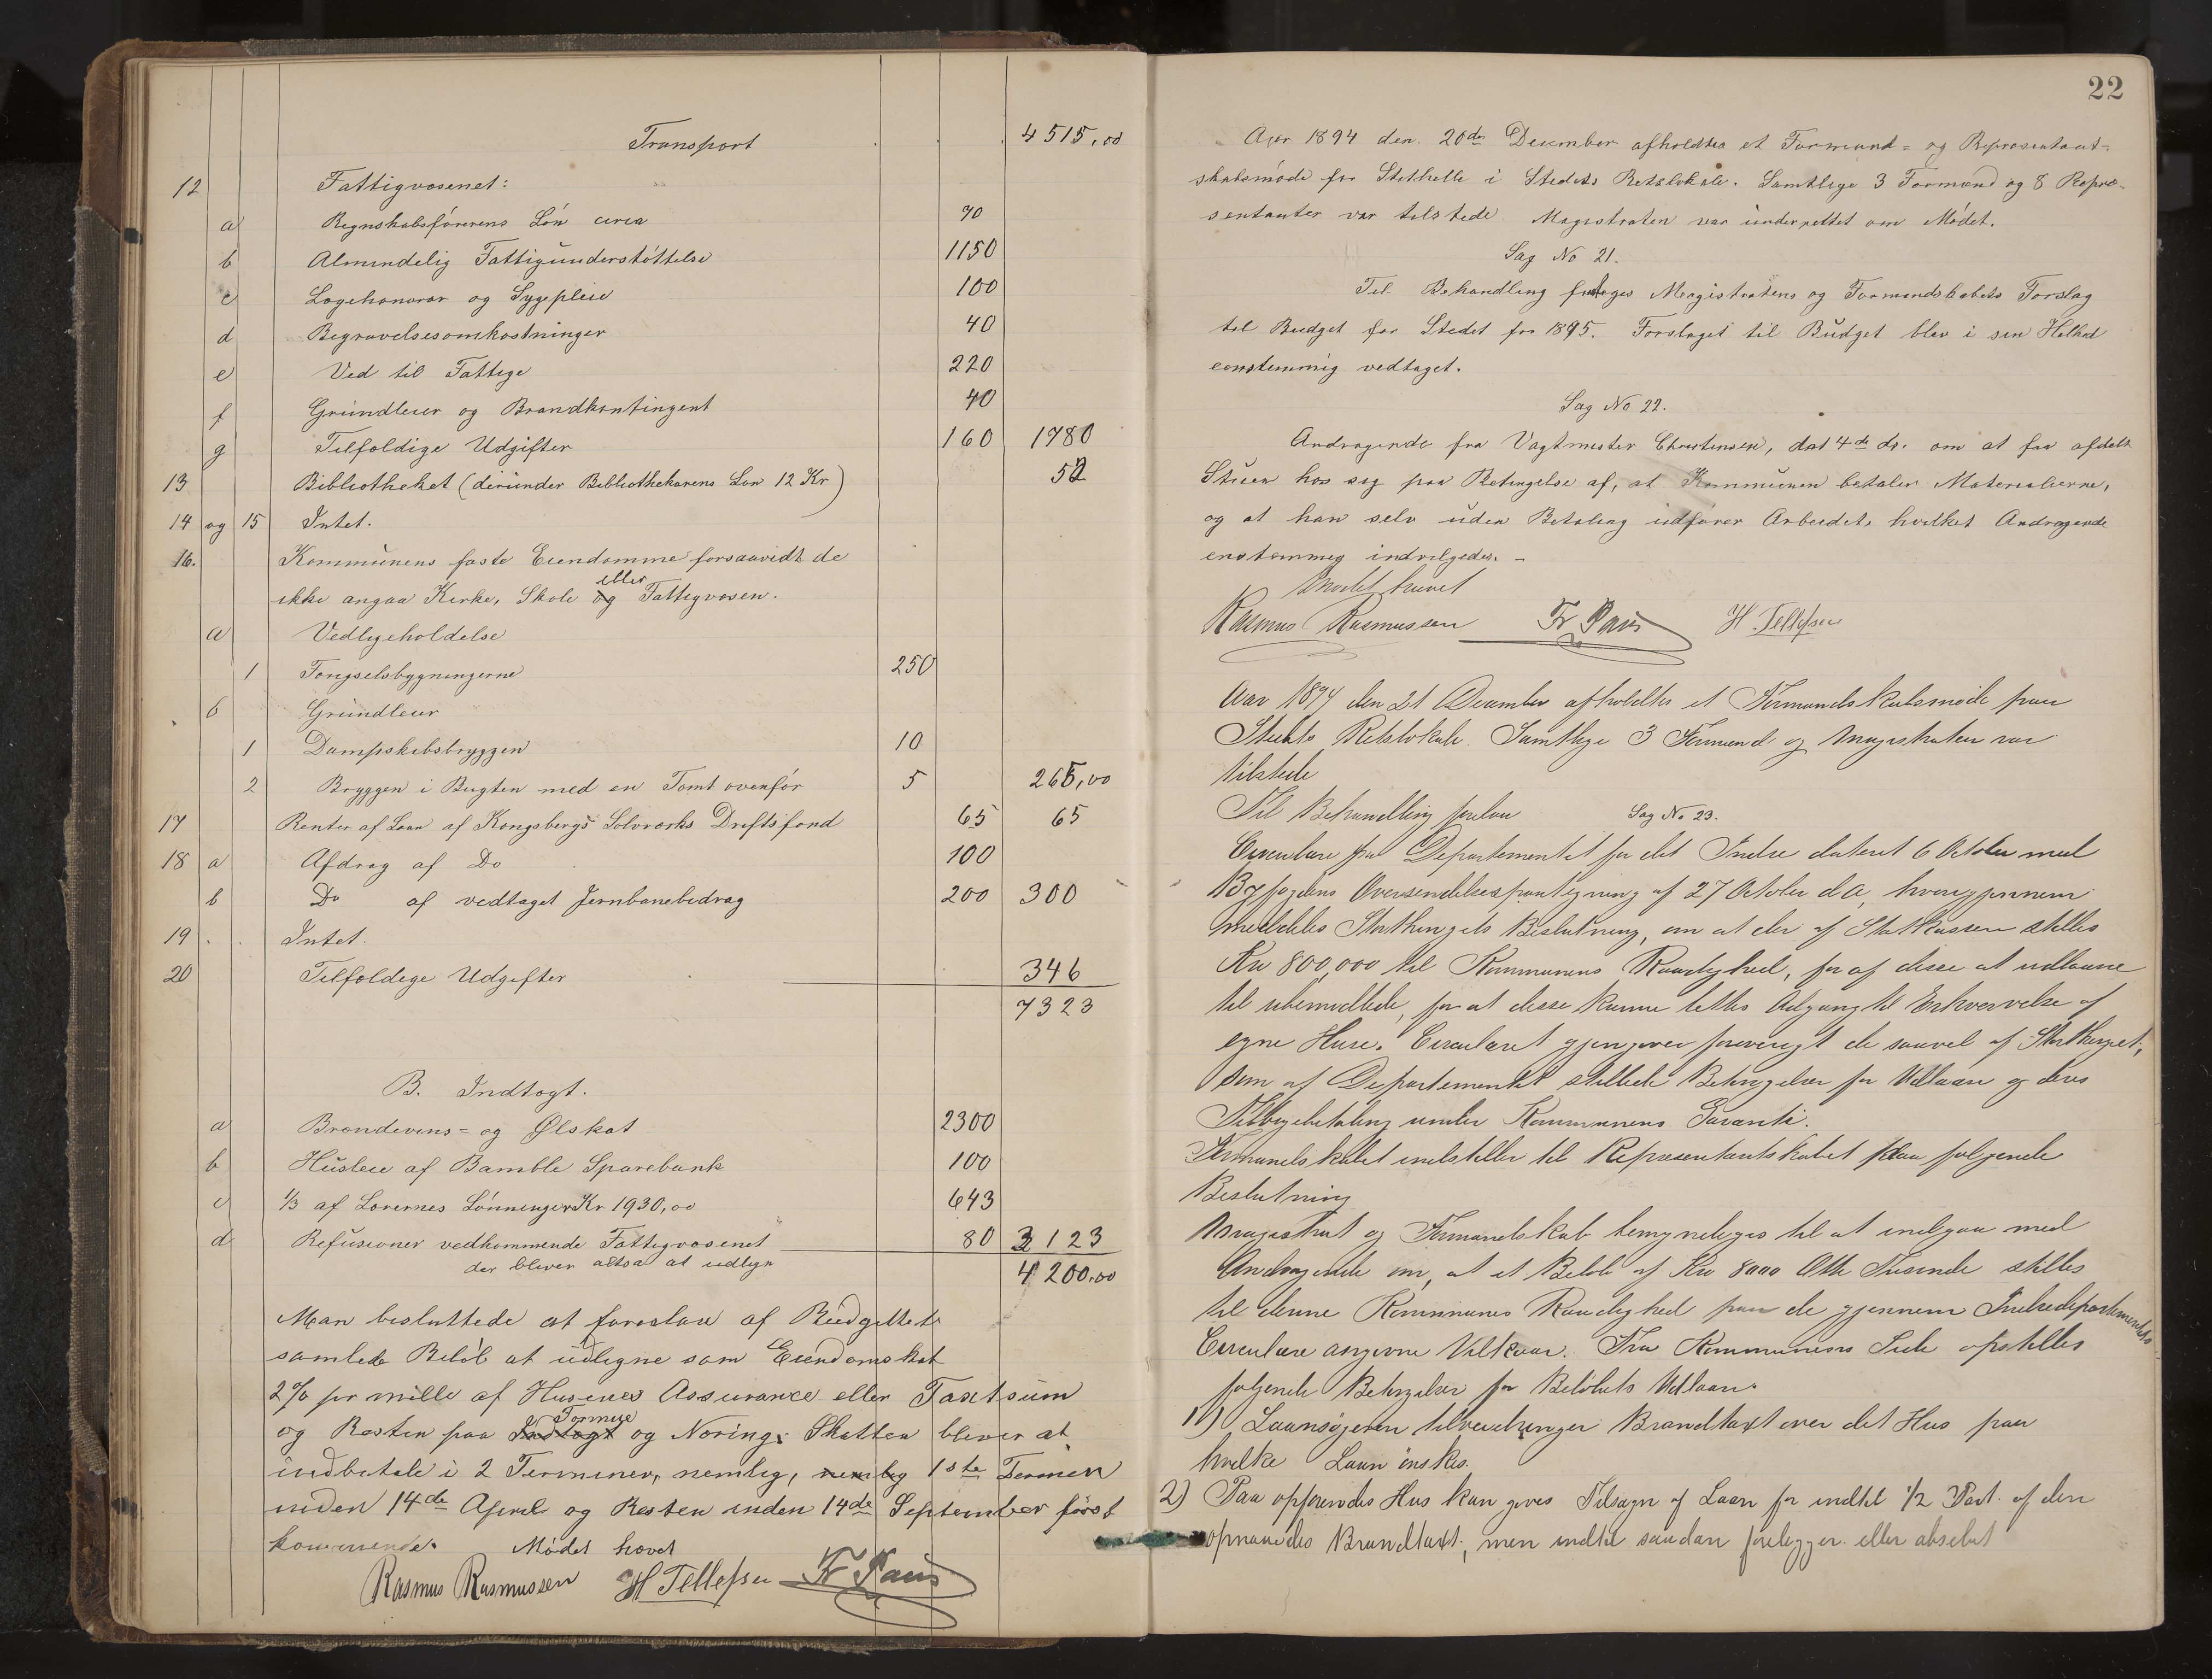 Transport 4515,00
12 Fattigvæsenet:
a Regnskabsförerens Lön circa 70
b Almindelig Fattigunderstöttelse 1150
c Lægehonorar og Sygepleie 100
d Begravelsesomkostninger 40
e Ved til Fattige 220
f Grundleier og Brandkontingent 40
g Tilfældige Udgifter 160 1780
13 Bibliotheket (derunder Bibliothekarens Løn 12 Kr) 52
14 og 15 Intet.
16. Kommunens faste Eiendomme forsaavidt de
ikke angaa Kirke, Skole og eller Fattigvæsen.
a Vedligeholdelse
1 Fængselsbygningerne 250
b Grundleier
1 Dampskibsbryggen 10
2 Bryggen i Bugten med en Tomt ovenför 5 265,00
17 Renter af Laan af Kongsbergs Sølvværks Driftsfond 65 65
18 a Afdrag af Do 100
b Do af vedtaget Jernbanebidrag 200 300
19 Intet.
20 Tilfældige Udgifter 346
7323
B. Indtægt.
a Brændevins- og Ølskat 2300
b Husleie af Bamble Sparebank 100
c 1/3 af Lærernes Lönninger Kr 1930,00 643
d Refusioner vedkommende Fattigvæsenet 80 3123
der bliver altsaa at udlign 4200,00
Man besluttede at foreslaa af Budgettets
samlede Belöb at udligne som Eiendomskat
2% pr mille af Husenes Assurance eller Taxtsum
og Resten paa Indtægt Formue og Næring. Skatten bliver at
indbetale i 2 Terminer, nemlig, nemlig 1ste Termin
inden 14de April og Resten inden 14de September först
kommende. Mödet hævet
Rasmus Rasmussen H Tellefsen Fr Paus
22
Aar 1894 den 20de December afholdtes et Formand- og Repræsentant-
skabsmöde for Stathelle i Stedets Retslokale. Samtlige 3 Formænd og 8 Repræ-
sentanter var tilstede. Magistraten var underrettet om Mödet.
Sag No 21.
Til Behandling Magistratens og Formandskabets Forslag
til Budget for Stedet for 1895. Forslaget til Budget blev i sin Helhed
enstemmig vedtaget.
Sag No 22.
Andragende fra Vagtmester Christensen, dat 4de ds. om at faa afdelt
Stuen hos sig paa Betingelse af, at Kommunen betaler Materialierne,
og at han selv uden Betaling udfører Arbeidet, hvilket Andragende
enstemmig indvilgedes. -
Mødet hævet
Rasmus Rasmussen Fr Paus H. Tellefsen
Aar 1894 den 21 December afholdtes et Formandskabsmøde paa
Stedets Retslokale. Samtlige 3 Formænd og Magistraten var
tilstede
Til Behandling forelaa Sag No 23.
Circulære fra Departementet for det Indre dateret 6 October med
Byfogdens Oversendelsespaategning af 27 October d A, hvorigjennem
meddeles Storthingets Beslutning, om at der af Statskassen stilles
Kr 800,000 til Kommunens Raadighed, for af disse at udlaane
til ubemidlede, for at disse kunne lettes Adgang til Erhvervelse af
egne Huse. Circulæret gjengiver forøvrigt de saavel af Storthinget,
som af Departementet stillede Betingelser for Udlaan og deres
Tilbagebetaling under Kommunens Garanti.
Formandskabet indstiller til Repræsentantskabet paa følgende
Beslutning
Magistrat og Formandskab bemyndiges til at indgaa med
Andragende om, at et Beløb af Kr 8000 Otte Tusinde stilles
til denne Kommunes Raadighed paa de gjennem Indredepartementets
Circulære angivne Vilkaar. Fra Kommunens Side opstilles
følgende Betingelser for Beløbets Udlaan.
1) Laansøgeren tilveiebringer Brandtaxt over det Hus paa
hvilke Laan ønskes.
2) Paa opførendes Hus kan gives Tilsagn af Laan for indtil 1/2 Part af den
opnaaedes Brandtaxt, men indtil saadan foreligger eller absolut